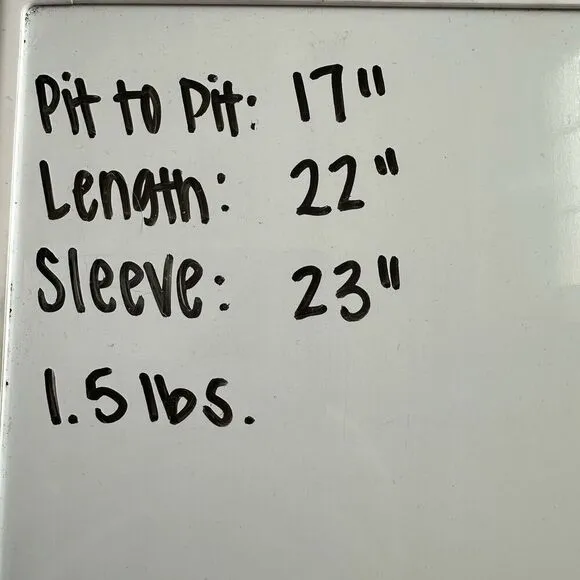 Pit to Pit: 17"
Length: 22"
Sleeve: 23"
1.5 lbs.